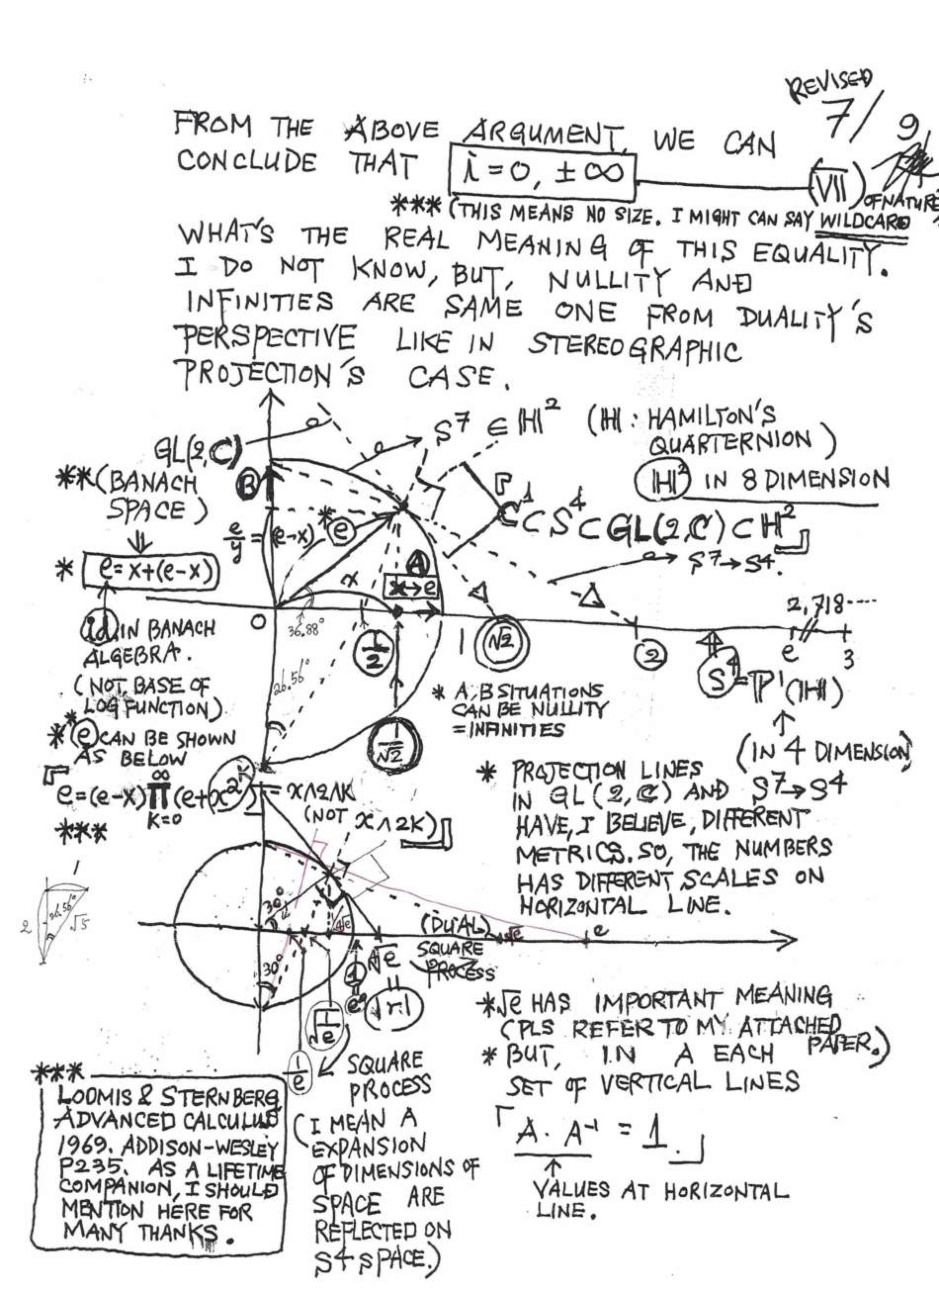 REVISED
7/9
FROM THE ABOVE ARGUMENT, WE CAN
CONCLUDE THAT i = 0, ± ∞ (VII)
OF NATURE
*** (THIS MEANS NO SIZE. I MIGHT CAN SAY WILDCARD
WHAT'S THE REAL MEANING OF THIS EQUALITY.
I DO NOT KNOW, BUT, NULLITY AND
INFINITIES ARE SAME ONE FROM DUALITY'S
PERSPECTIVE LIKE IN STEREOGRAPHIC
PROJECTION'S CASE.
GL(2,C)
S⁷ ∈ ℍ² (ℍ: HAMILTON'S
QUARTERNION)
ℍ² IN 8 DIMENSION
** (BANACH
SPACE)
B
e/y = (e-x)
* e
「C¹ ⊂ S⁴ ⊂ GL(2,C) ⊂ H²」
S⁷→S⁴.
* e = x+(e-x)
x
A
x→e
O
36.88°
26.56°
1/2
1
√2
2
2,718----
e
3
S⁴ = ℙ¹(ℍ)
(IN 4 DIMENSION)
id IN BANACH
ALGEBRA.
(NOT BASE OF
LOG FUNCTION)
* A,B SITUATIONS
CAN BE NULLITY
= INFINITIES
1/√2
** e CAN BE SHOWN
AS BELOW
「e=(e-x) ∞∏K=0 (e+x^2^K) = x∧2∧K
(NOT x∧2K)」
***
* PROJECTION LINES
IN GL(2,C) AND S⁷→S⁴
HAVE, I BELIEVE, DIFFERENT
METRICS. SO, THE NUMBERS
HAS DIFFERENT SCALES ON
HORIZONTAL LINE.
2
26.56°
√5
30°
30°
(DUAL)
SQUARE
PROCESS
√e
e
√e
"
|r|
1
"
e⁰
1/√e
1/e
SQUARE
PROCESS
(I MEAN A
EXPANSION
OF DIMENSIONS OF
SPACE ARE
REFLECTED ON
S4 SPACE.)
* √e HAS IMPORTANT MEANING
(PLS REFER TO MY ATTACHED
PAPER.)
* BUT, IN A EACH
SET OF VERTICAL LINES
「A · A⁻¹ = 1.」
↑
VALUES AT HORIZONTAL
LINE.
***
LOOMIS & STERNBERG
ADVANCED CALCULUS
1969. ADDISON-WESLEY
P235. AS A LIFETIME
COMPANION, I SHOULD
MENTION HERE FOR
MANY THANKS.